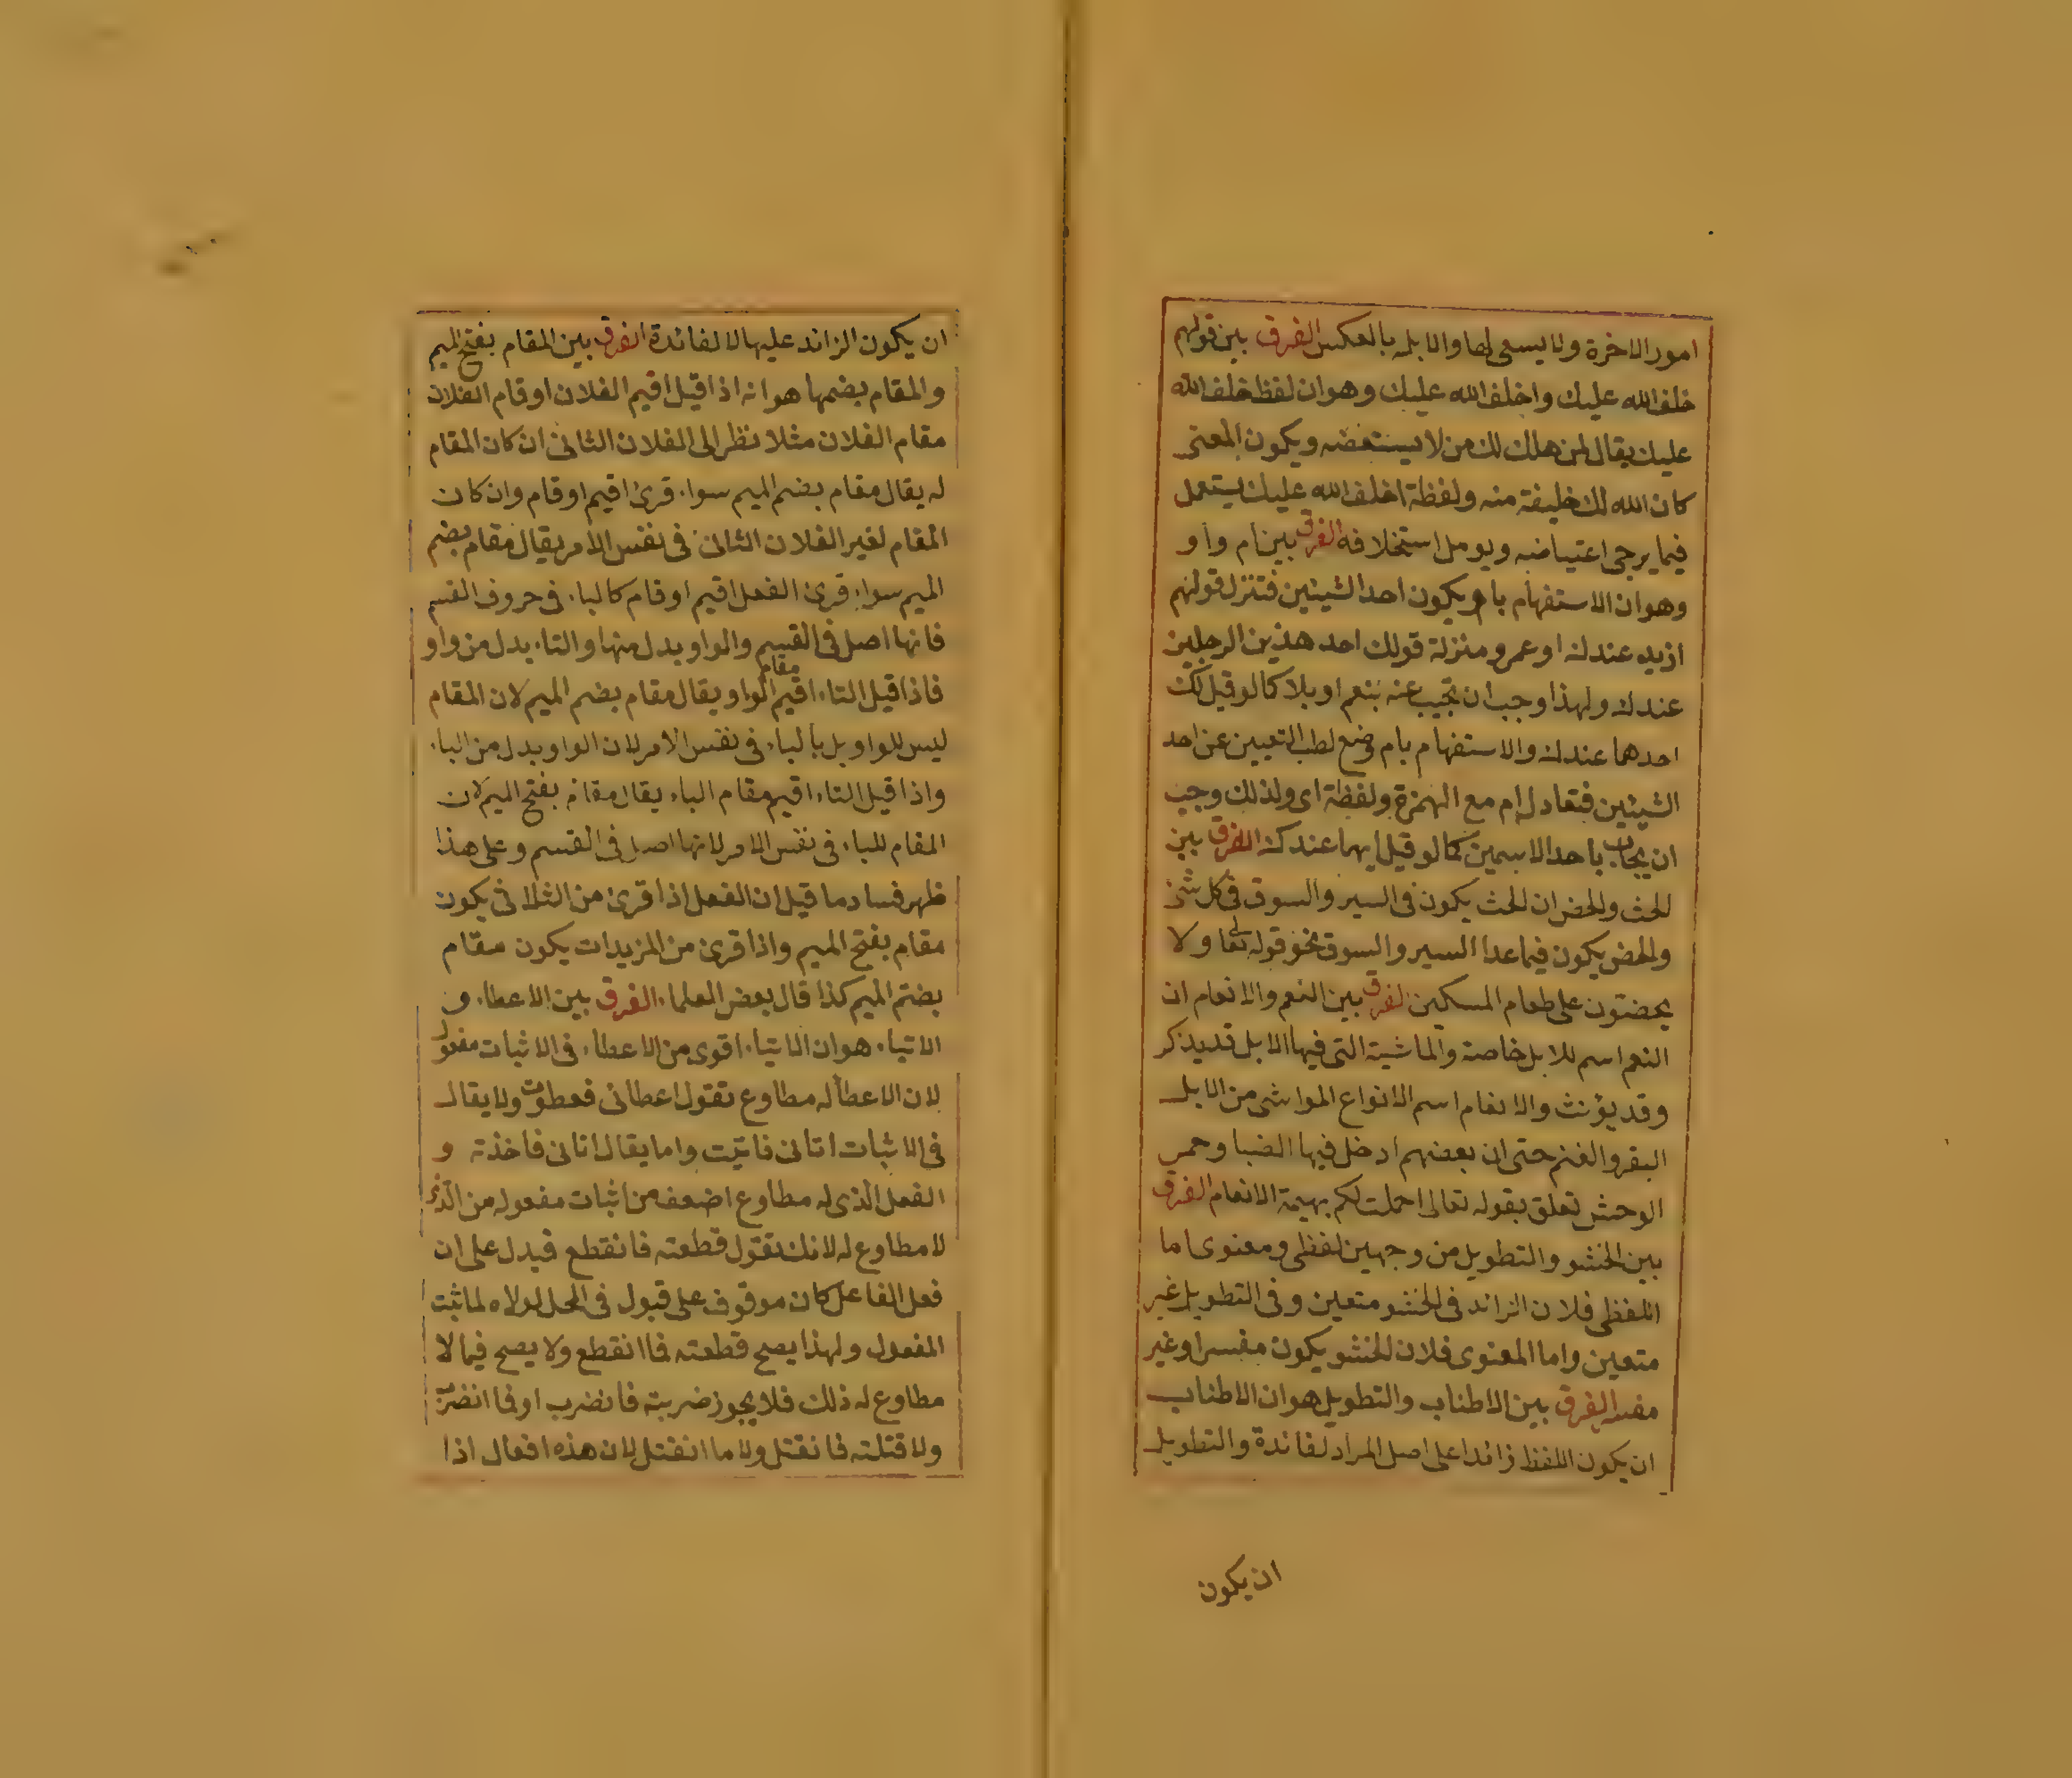 امور الاخرة ولا يسعى لها والابله بالعكس الفرق بين قولهم
خلف الله عليك واخلف الله عليك وهو ان لفظ خلف الله
عليك يقال لمن هلك لك من لا يستعضه ويكون المعنى
كان الله لك خليفة منه ولفظة اخلف الله عليك يستعمل
فيما يرجى اعتياضه ويومل استخلافه الفرق بين ام واو
وهو ان الاستفهام باو يكون احد الشيئين فتنزل قولهم
ازيد عندك او عمرو منزلة قولك احد هذين الرجلين
عندك ولهذا وجب ان تجيب عنه بنعم او بلا كما لو قيل لك
احدهما عندك والاستفهام بام وضع لطلب التعيين عن احد
الشيئين فتعادل ام مع الهمزة ولفظة اى ولذلك وجب
ان يجاب باحد الاسمين كما لو قيل ايهما عندك الفرق بين
الحث والحض ان الحث يكون فى السير والسوق فى كل شئ
والحض يكون فيما عدا السير والسوق نحو قوله تعا ولا
يحضون على طعام المسكين الفرق بين النعم والانعام ان
النعم اسم للابل خاصة والماشية التى فيها الابل قد يذكر
وقد يؤنث والانعام اسم الانواع المواشى من الابل
البقر والغنم حتى ان بعضهم ادخل فيها الضبا وحمر
الوحش تعلق بقوله تعالى احملت لكم بهيمة الانعام الفرق
بين الحشو والتطويل من وجهين لفظى ومعنوى اما
اللفظى فلان الزائد فى الحشو متعين وفى التطويل غير
متعين واما المعنوى فلان الحشو يكون مفسرا وغير
مفسد الفرق بين الاطناب والتطويل هو ان الاطناب
ان يكون اللفظ زائدا على اصل المراد لفائدة والتطويل
ان يكون
ان يكون الزائد عليها لا لفائدة الفرق بين المقام بفتح الميم
والمقام بضمها هو انه اذا قيل اقيم الفلان او قام الفلان
مقام الفلان مثلا نظر الى الفلان الثانى ان كان المقام
له يقال مقام بضم الميم سواء قرئ اقيم او قام وان كان
المقام لغير الفلان الثانى فى نفس الامر يقال مقام بضم
الميم سواء قرئ الفعل اقيم او قام كالباء فى حروف القسم
فانها اصل فى القسم والواو بدل منها والتاء بدل من واو
فاذا قيل التاء اقيم مقام الواو ويقال مقام بضم الميم لان المقام
ليس للواو بل بالباء فى نفس الامر لان الواو بدل من الباء
واذا قيل التاء اقيم مقام الباء يقال مقام بفتح الميم لان
المقام للباء فى نفس الامر لانها اصل فى القسم وعلى هذا
ظهر فساد ما قيل ان الفعل اذا قرئ من الثلاثى يكون
مقام بفتح الميم واذا قرئ من المزيدات يكون مقام
بضم الميم كذا قال بعض العلماء الفرق بين الاعطاء و
الاتياء هو ان الاتياء اقوى من الاعطاء فى الاثبات مفعول
لان الاعطا له مطاوع تقول اعطانى فعطوت ولا يقال
فى الاثبات اتانى فاتيت واما يقال اتانى فاخذته و
الفعل الذى له مطاوع اضعف من اثبات مفعوله من الذى
لا مطاوع له لانك تقول قطعته فانقطع فيدل على ان
فعل الفاعل كان موقوف على قبول فى المحل لولاه لما ثبت
المفعول ولهذا يصح قطعته فما انقطع ولا يصح فيما لا
مطاوع له ذلك فلا يجوز ضربته فانضرب او فما انضرب
ولا قتلته فانقتل ولا ما انقتل لان هذه افعال اذا